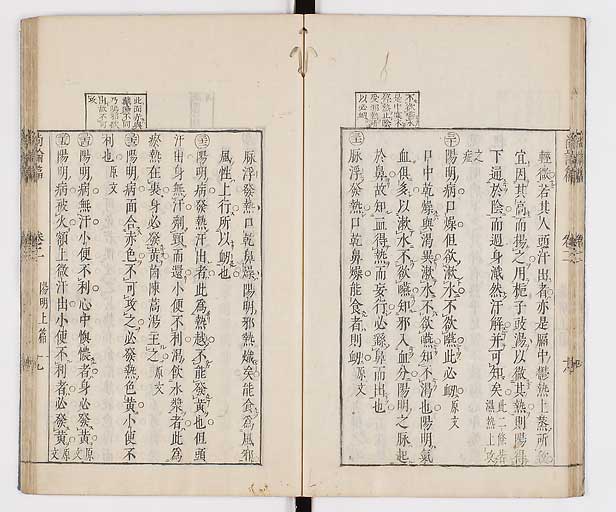 不欲嚥水
是中寒不
以必衄
輕微若其人頭汗出者亦是膈中鬱熱上蒸所
宜因其高而揚之用梔子豉湯以微其熱則陽得
下通於陰而週身濈然汗解并可知矣此二條皆濕熱上攻
之症
陽明病口燥但欲漱水不欲嚥此必衄原文
口中乾燥與渴異漱水不欲嚥知不渴也陽明氣
血俱多以漱水不欲嚥知邪入血分陽明之脉起
於鼻故知血得熱而妄行必繇鼻而出也
脉浮發熱口乾鼻燥能食者則衄原文
此面赤與
出故不可
攻
脉浮發熱口乾鼻燥陽明邪熱熾矣能食爲風邪
風性上行所以衄也
陽明病發熱汗出者此為熱越不能發黃也但頭
汗出身無汗劑頸而還小便不利渴飲水漿者此為
瘀熱在裏身必發黃茵蔯蒿湯主之原文
陽明病面合赤色不可攻之必發熱色黃小便不
利也原文
陽明病無汗小便不利心中懊憹者身必發黃原文
陽明病被火額上微汗出小便不利者必發黃原文
尚論篇 卷二 陽明上篇 十九